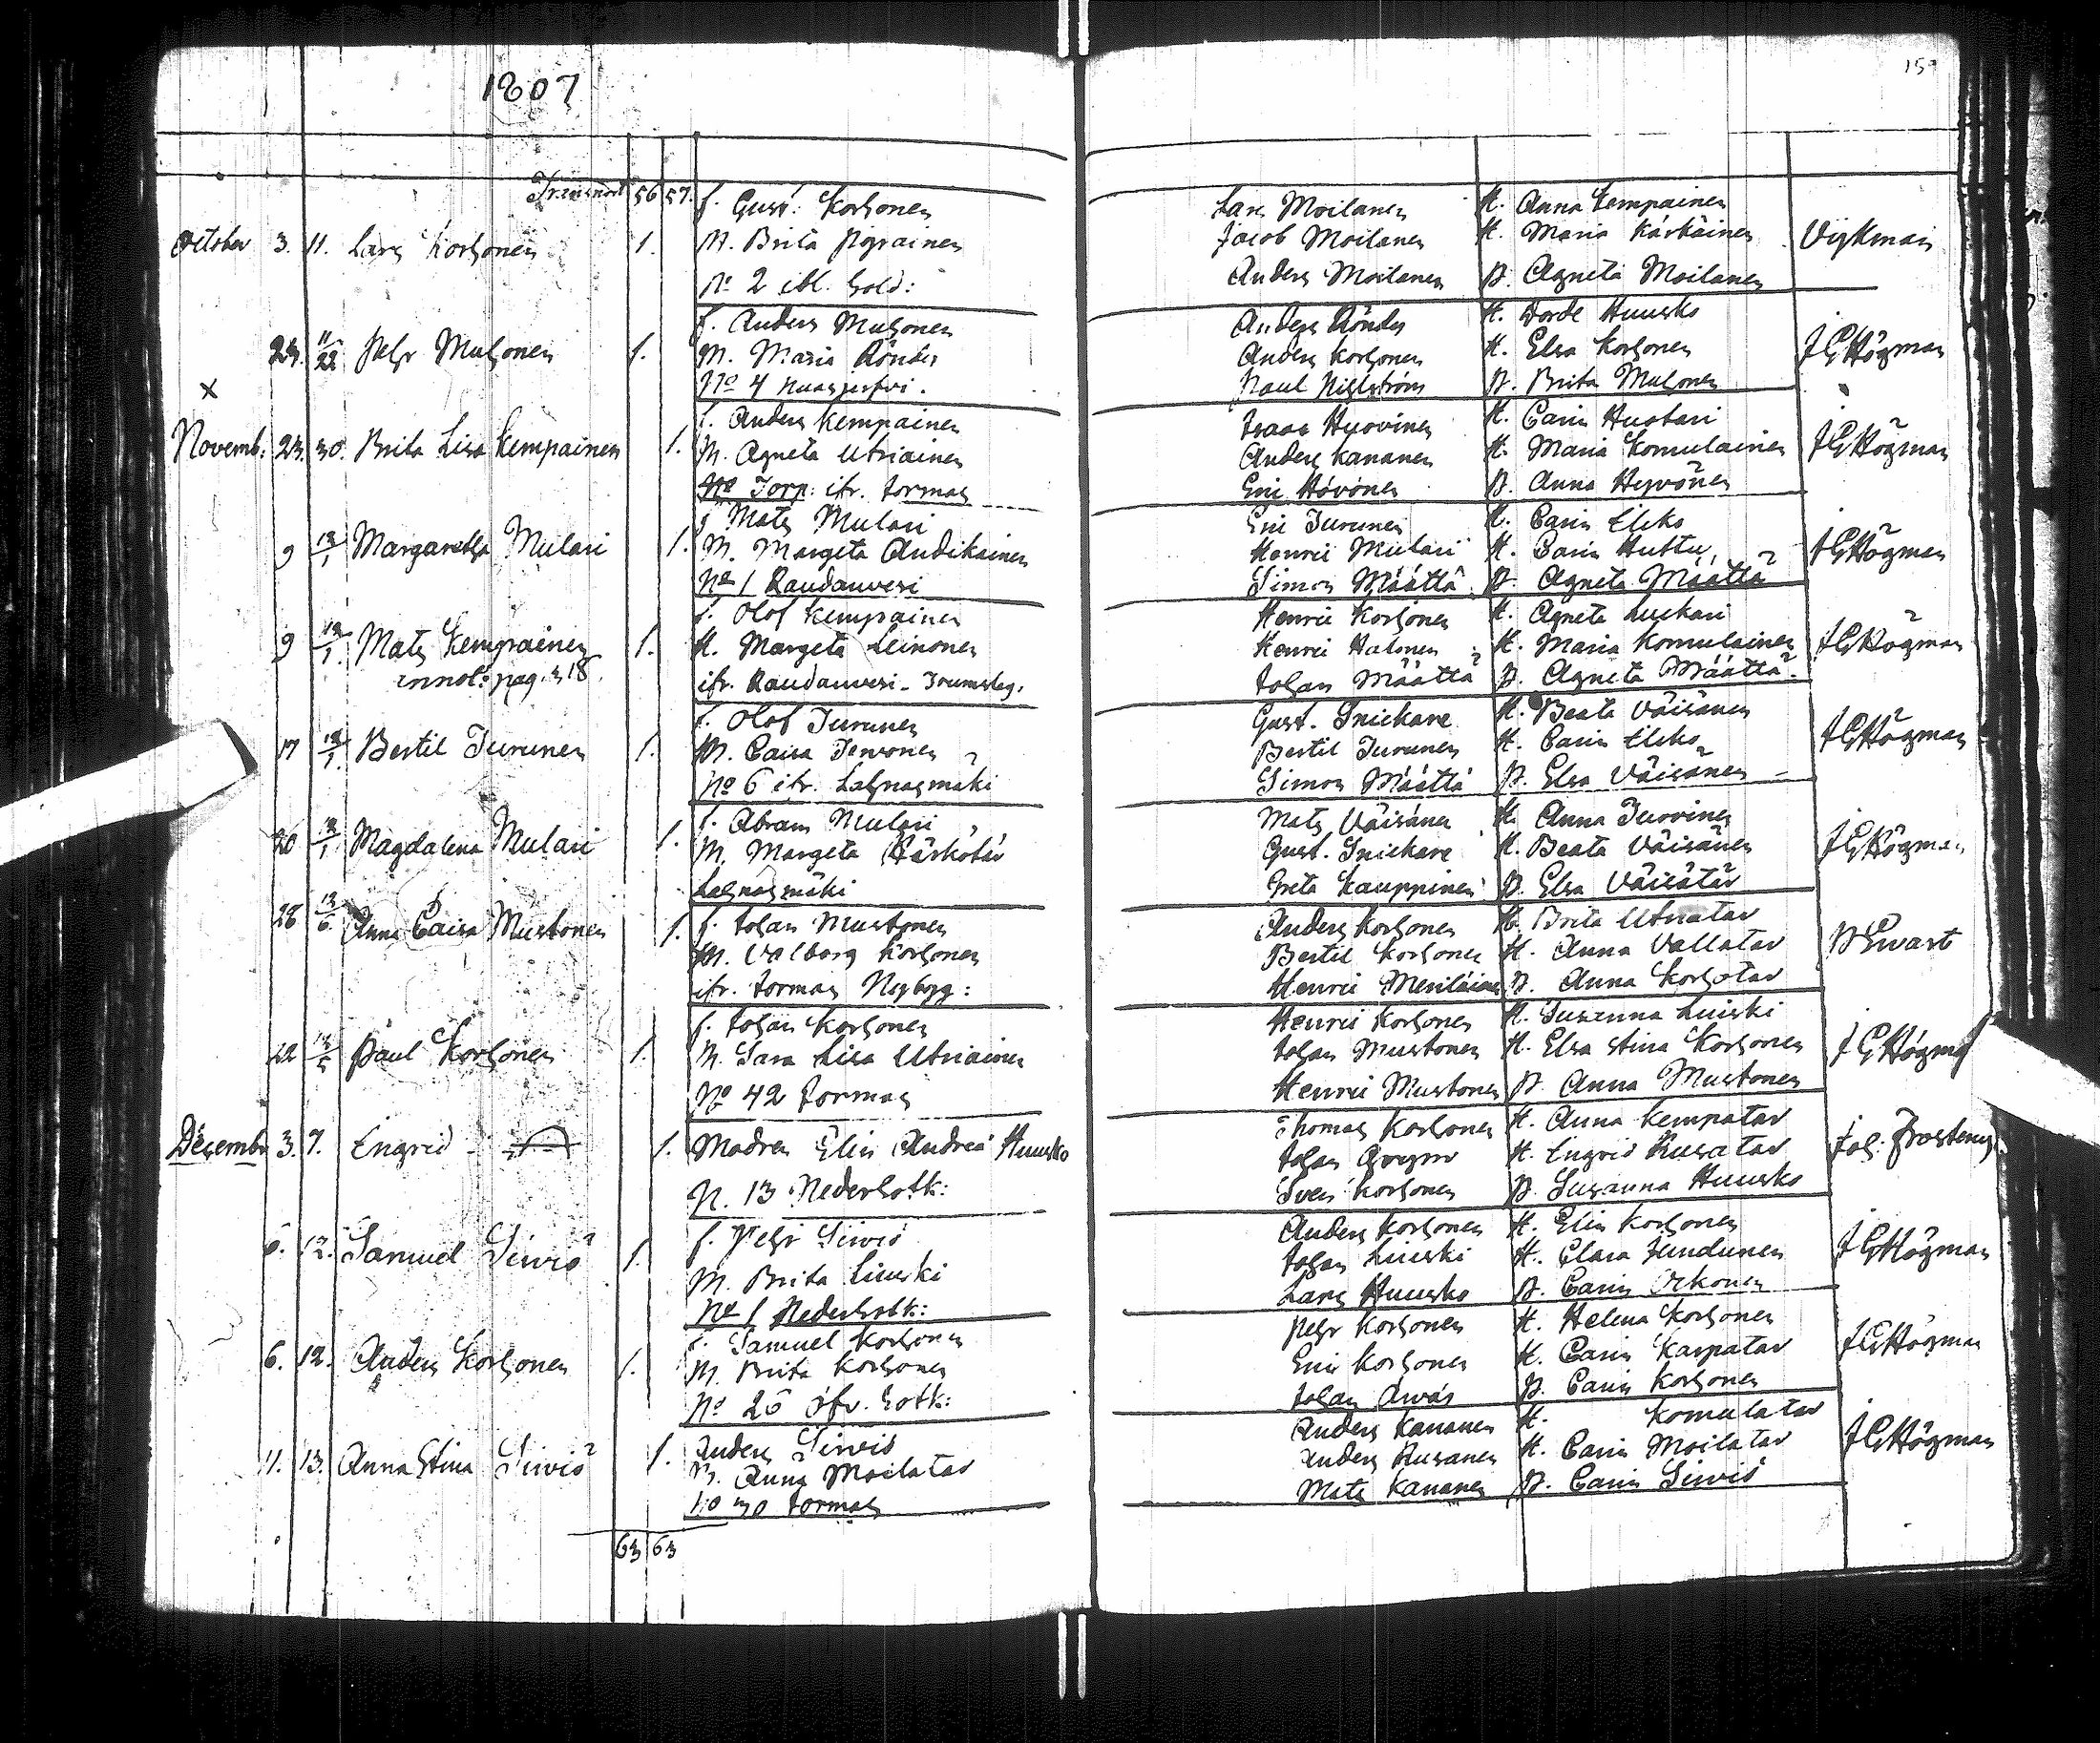 1807
159
Transport 56 57.
f. Gust: Korhonen Lars Moilanen H. Anna Kempainen
October 3. 11. Lars Korhonen 1. M. Brita Pyyrainen Jacob Moilanen H. Maria Kärkäinen Vijkman
No 2 ibl. Sold: Anders Moilanen P. Agneta Moilanen
f. Anders Muhonen Anders Röndy H. Dorde Huusko
24. 11/22 Pehr Muhonen 1. M. Maria Röndy Anders Korhonen H. Elsa Korhonen J G Högman
No 4 Nuasjerfvi. Paul Hillström P. Brita Muhonen
x
f. Anders Kempainen Isaac Huovinen H. Carin Huotari
Novemb: 23. 30. Brita Lisa Kempainen 1. M. Agneta Utriainen Anders Kananen H. Maria Komulainen J G Högman
No Torp: ifr. Sormas Eric Hövönen P. Anna Hyvönen
f Mats Mulari Eric Turunen H. Carin Eleko
9 12/1 Margaretha Mulari 1. M. Margeta Andikainen Henric Mulari H. Carin Huttu, J G Högman
No 1 Raudanvesi Simon Määttä P. Agneta Määttä
f. Olof Kempainen Henric Korhonen H. Agneta Luckari
9 12/1. Mats Kempainen 1. M. Margeta Leinonen Henric Halonen H. Maria Komulainen J G Högman
annot: pag. 318. ifr. Raudanvesi - Trumslag. Johan Määttä P. Agneta Määttä
f. Olof Turunen Gust. Snickare H. Beata Väisänen
17 12/1. Bertil Turunen 1. M. Caisa Tervonen Bertil Turunen H. Carin Eleko J G Högman
No 6 ifr. Lahnasmäki Simon Määttä P. Elsa Väisänen
f. Abram Mulari Mats Väisänen H. Anna Juvvinen
20 12/1 Magdalena Mulari 1. M. Margeta Härkötär Gust. Snickare H. Beata Väisänen J G Högman
Lahnasmäki Greta Kauppinen P. Elsa Väisätär
28 12/6. Anna Caisa Mustonen 1. f. Johan Mustonen Anders Korhonen H. Brita Utriatar
M. Valborg Korhonen Bertil Korhonen H. Anna Vallatar P Ewart
ifr. Sormas Nybyg: Henric Meriläinen P. Anna Korhotar
f. Johan Korhonen Henric Korhonen H. Susanna Liuski
22 12/5 Paul Korhonen 1. M. Sara Lisa Utriainen Johan Mustonen H. Elsa Stina Korhonen J G Högman
No 42 Sormas Henric Mustonen P. Anna Mustonen
Thomas Korhonen H. Anna Kempatar
Decembr 3. 7. Engrid 1. Modren Elin Andrea Huusko Johan H. Engrid Rusatar Joh: Frosterus
N. 13 Nedersotk: Sven Korhonen P. Susanna Huusko
f. Pehr Sirviö Anders Korhonen H. Elin Korhonen
6. 12. Samuel Sirviö 1. Johan Liuski H. Clara Jundunen J G Högman
M. Brita Liuski
No 1 Nedersotk: Lars Huusko P. Carin Okonen
f. Samuel Korhonen Pehr Korhonen H. Helena Korhonen
6. 12. Anders Korhonen 1. M. Brita Korhonen Eric Korhonen H. Carin Karpatar J G Högman
No 26 öfv. Sotk: Johan Awäs P. Carin Korhonen
Anders Kananen H. Komulatar
11. 13. Anna Stina Sirviö 1. Anders Sirviö Anders Kusanen H. Carin Moilatar J G Högman
M. Anna Moilatar
No 30 Sormas Mats Kananen P. Carin Sirviö
63 63